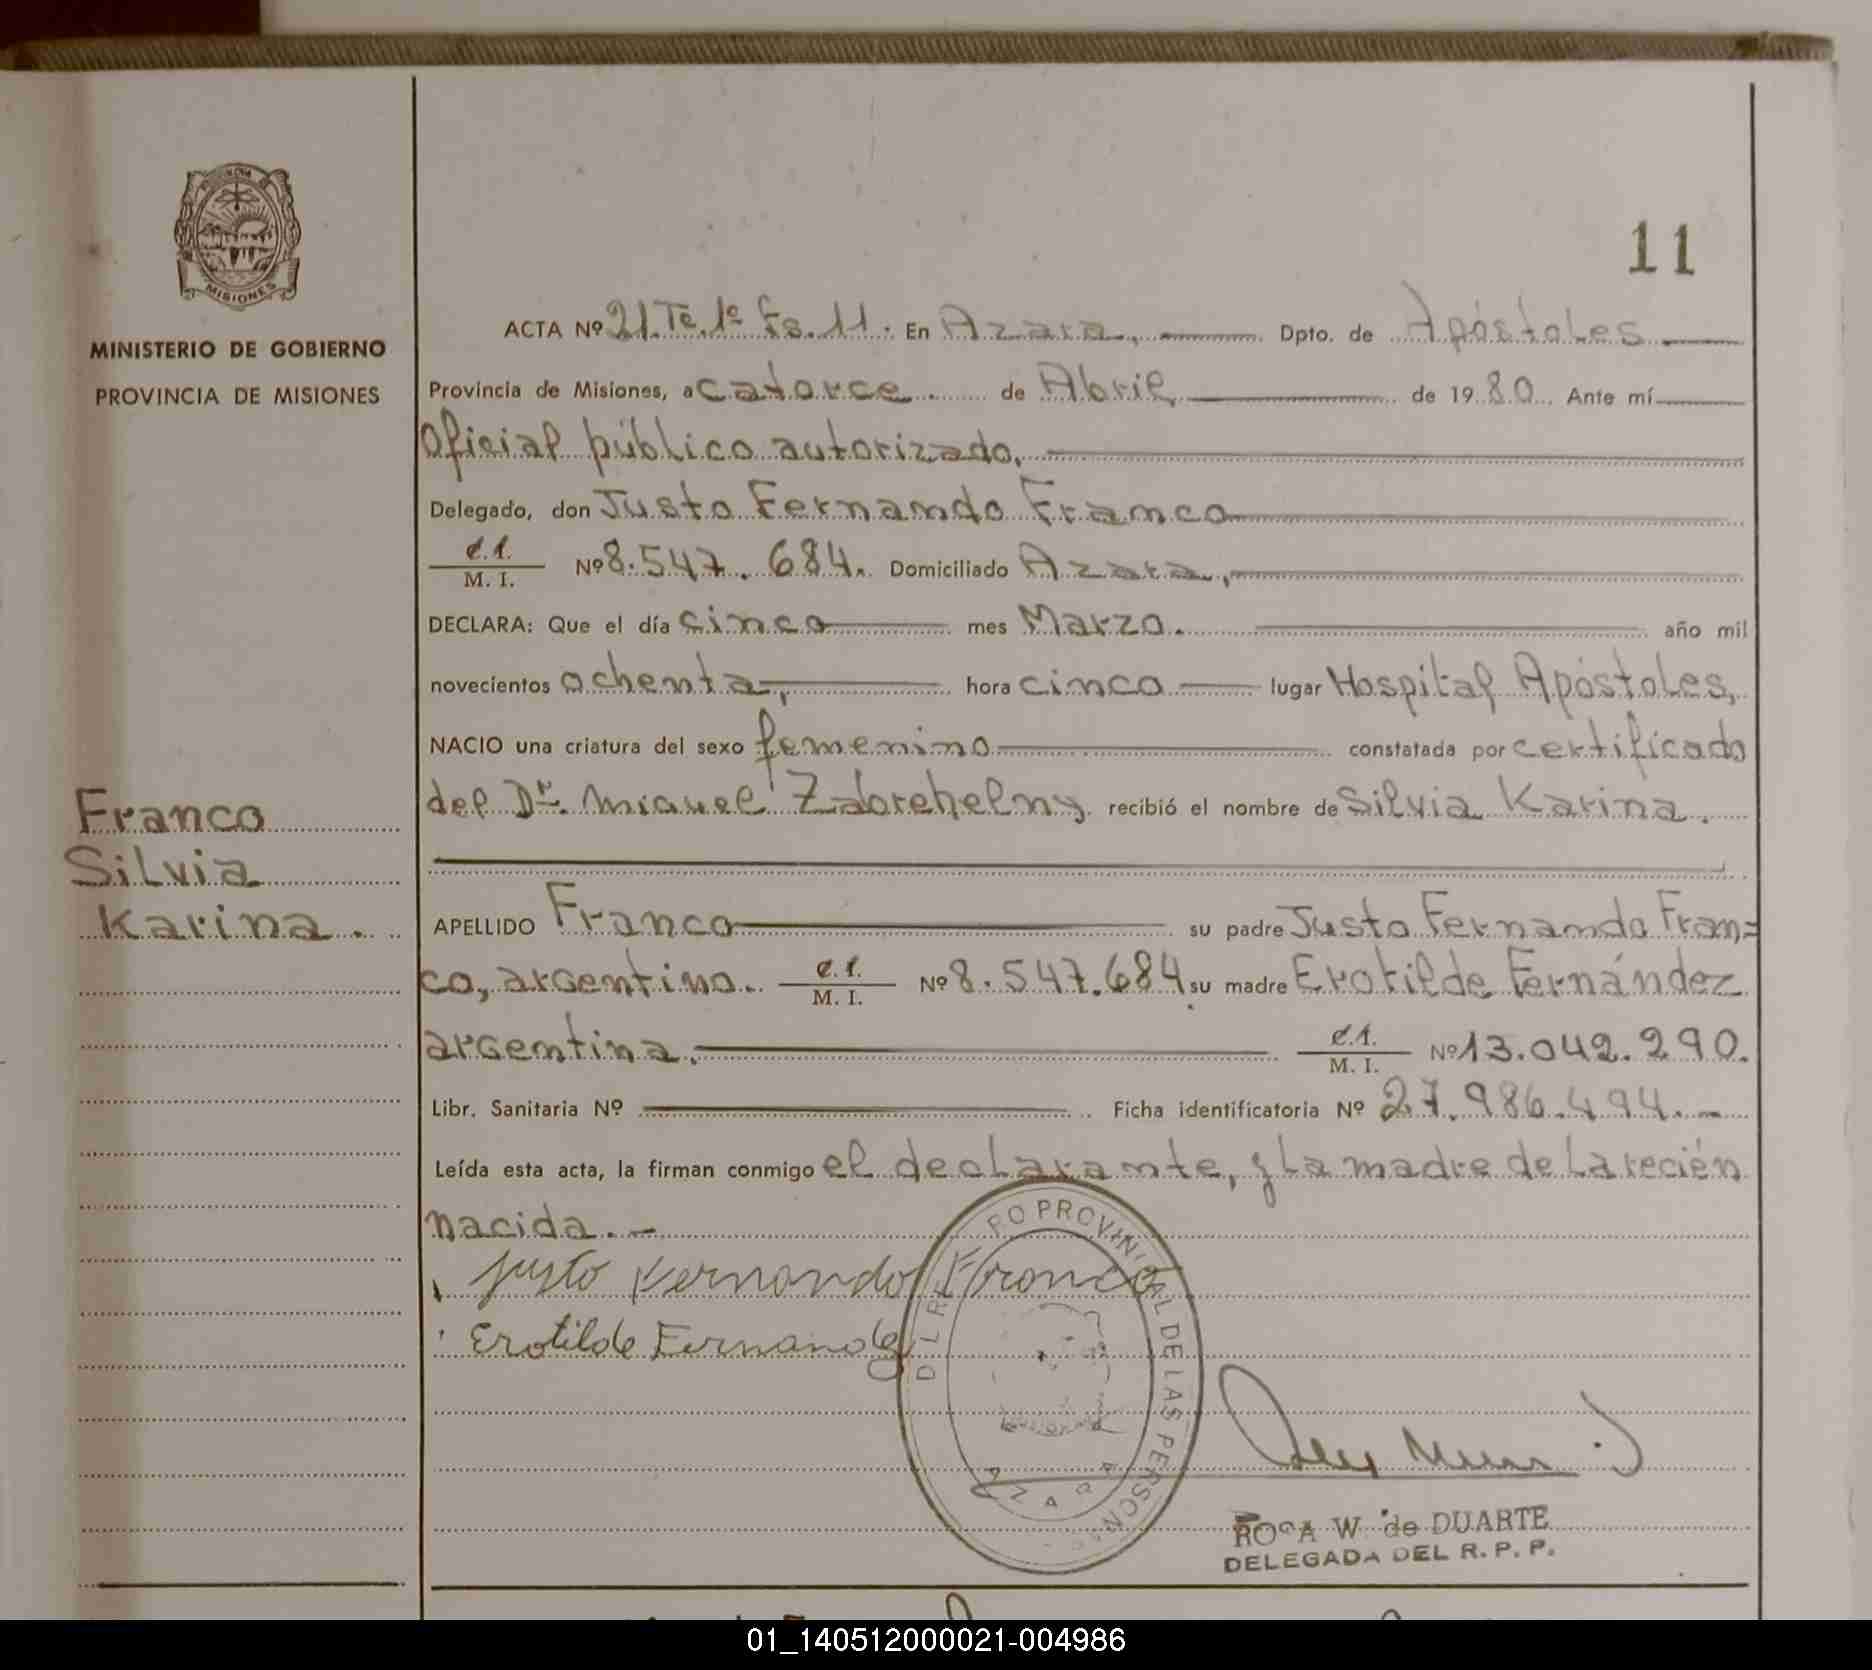 11
MISIONES
MINISTERIO DE GOBIERNO
PROVINCIA DE MISIONES
Franco
Silvia
Karina.
ACTA Nº 21. Tº. 1º Fs. 11. En Azara, Dpto. de Apóstoles
Provincia de Misiones, a catorce de Abril, de 1980. Ante mí
Oficial público autorizado,
Delegado, don Justo Fernando Franco
C.I. Nº 8.547.684. Domiciliado Azara,
M. I.
DECLARA: Que el día cinco mes Marzo. año mil
novecientos ochenta, hora cinco lugar Hospital Apóstoles,
NACIO una criatura del sexo femenino constatada por certificado
del Dr. Miguel recibió el nombre de Silvia Karina.
APELLIDO Franco su padre Justo Fernando Fran=
co, argentino. C.I. Nº 8.547.684 su madre Erotilde Fernández
M. I.
argentina. C.I. Nº 13.042.290.
M. I.
Libr. Sanitaria Nº Ficha identificatoria Nº 27.986.494.-
Leída esta acta, la firman conmigo el declarante, y la madre de la recién
nacida.-
Justo Fernando Franco
Erotilde Fernandez
PROVINCIAL DE LAS PERSONAS
AZARA
ROSA W. de DUARTE
DELEGADA DEL R. P. P.
01_140512000021-004986